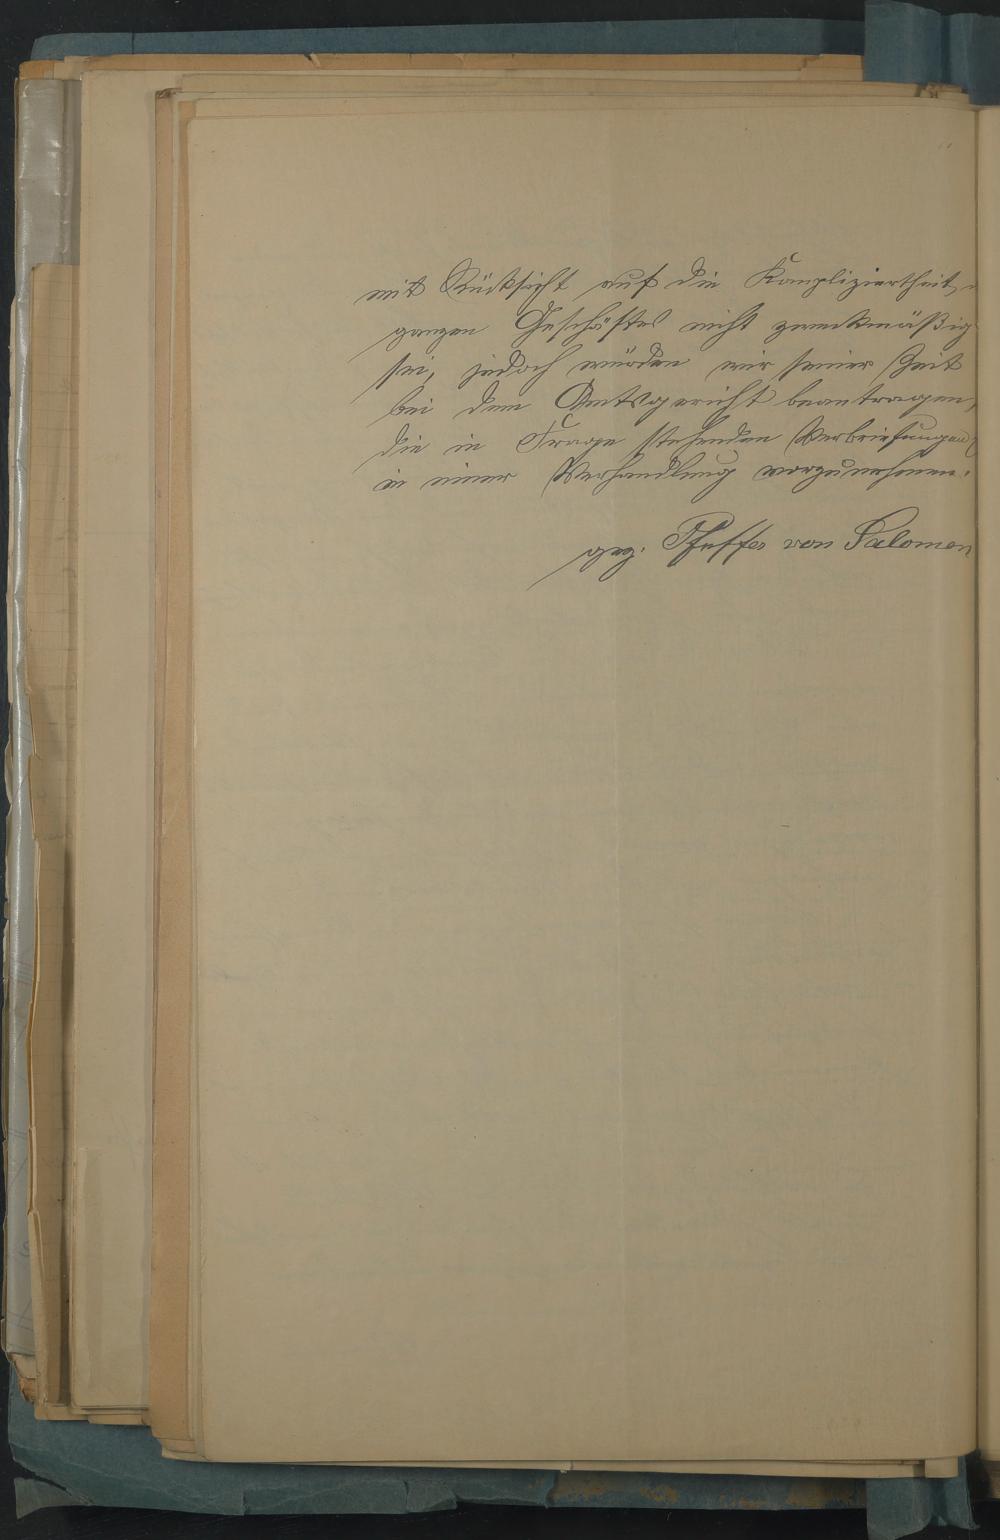 mit Rücksicht auf die Kompliziertheit
ganzen Geschäftes nicht zweckmäßig
sei, jedoch würden wir seiner Zeit
bei dem Amtsgericht beantragen,
die in Frage stehenden Verbriefungen
in einer Verhandlung vorzunehmen.
gez. Pfeffer von Salomon